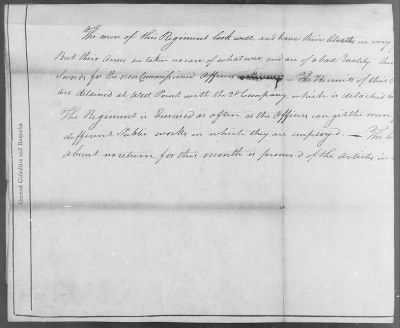 The men of this Regiment look well, and have their Cloaths in very g
But there Arms are taken no care of whatever and are of a bad Quality
Swords for the non Commissioned Officers The Recruits of this
are detained at West Point with the 2d Company which is detached
The Regiment is Exercised as often as the Officers can get the men
different Public works in which they are employ'd. — The
about no return for this month is procur'd of the articles in
General Casualties and Remarks